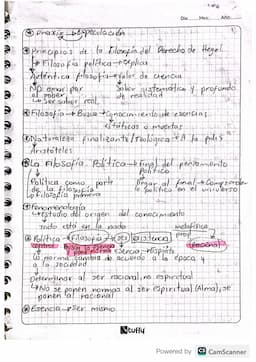 Día Mes Año
praxis → especulación
Principios de la Filosofía del Derecho de Hegel
Filosofía política → explica
Auténtica filosofía → valor de ciencia
No amar por el saber Saber sistemático y profundo de realidad
↳ Ser saber real
Filosofía → Busca → Conocimiento de esencias
estáticas o muertas
Naturaleza finalizante/teológica → A la polis
Aristóteles
La Filosofía Política → final del pensamiento
Político
Política como parte de la filosofía llegar al final → Comprender
la política en el universo
la filosofía primera
Fenomenología
↳ estudio del origen del conocimiento
todo está en la nada metafísica
Política → filosofía → ser existencia
racional
la norma cambia de acuerdo a la época y
a la sociedad
Determinar al ser racional no espiritual
↳ No se ponen norma al ser espiritual (Alma), se
ponen al racional
Esencia → Ser mismo
tuffy
Powered by CS CamScanner